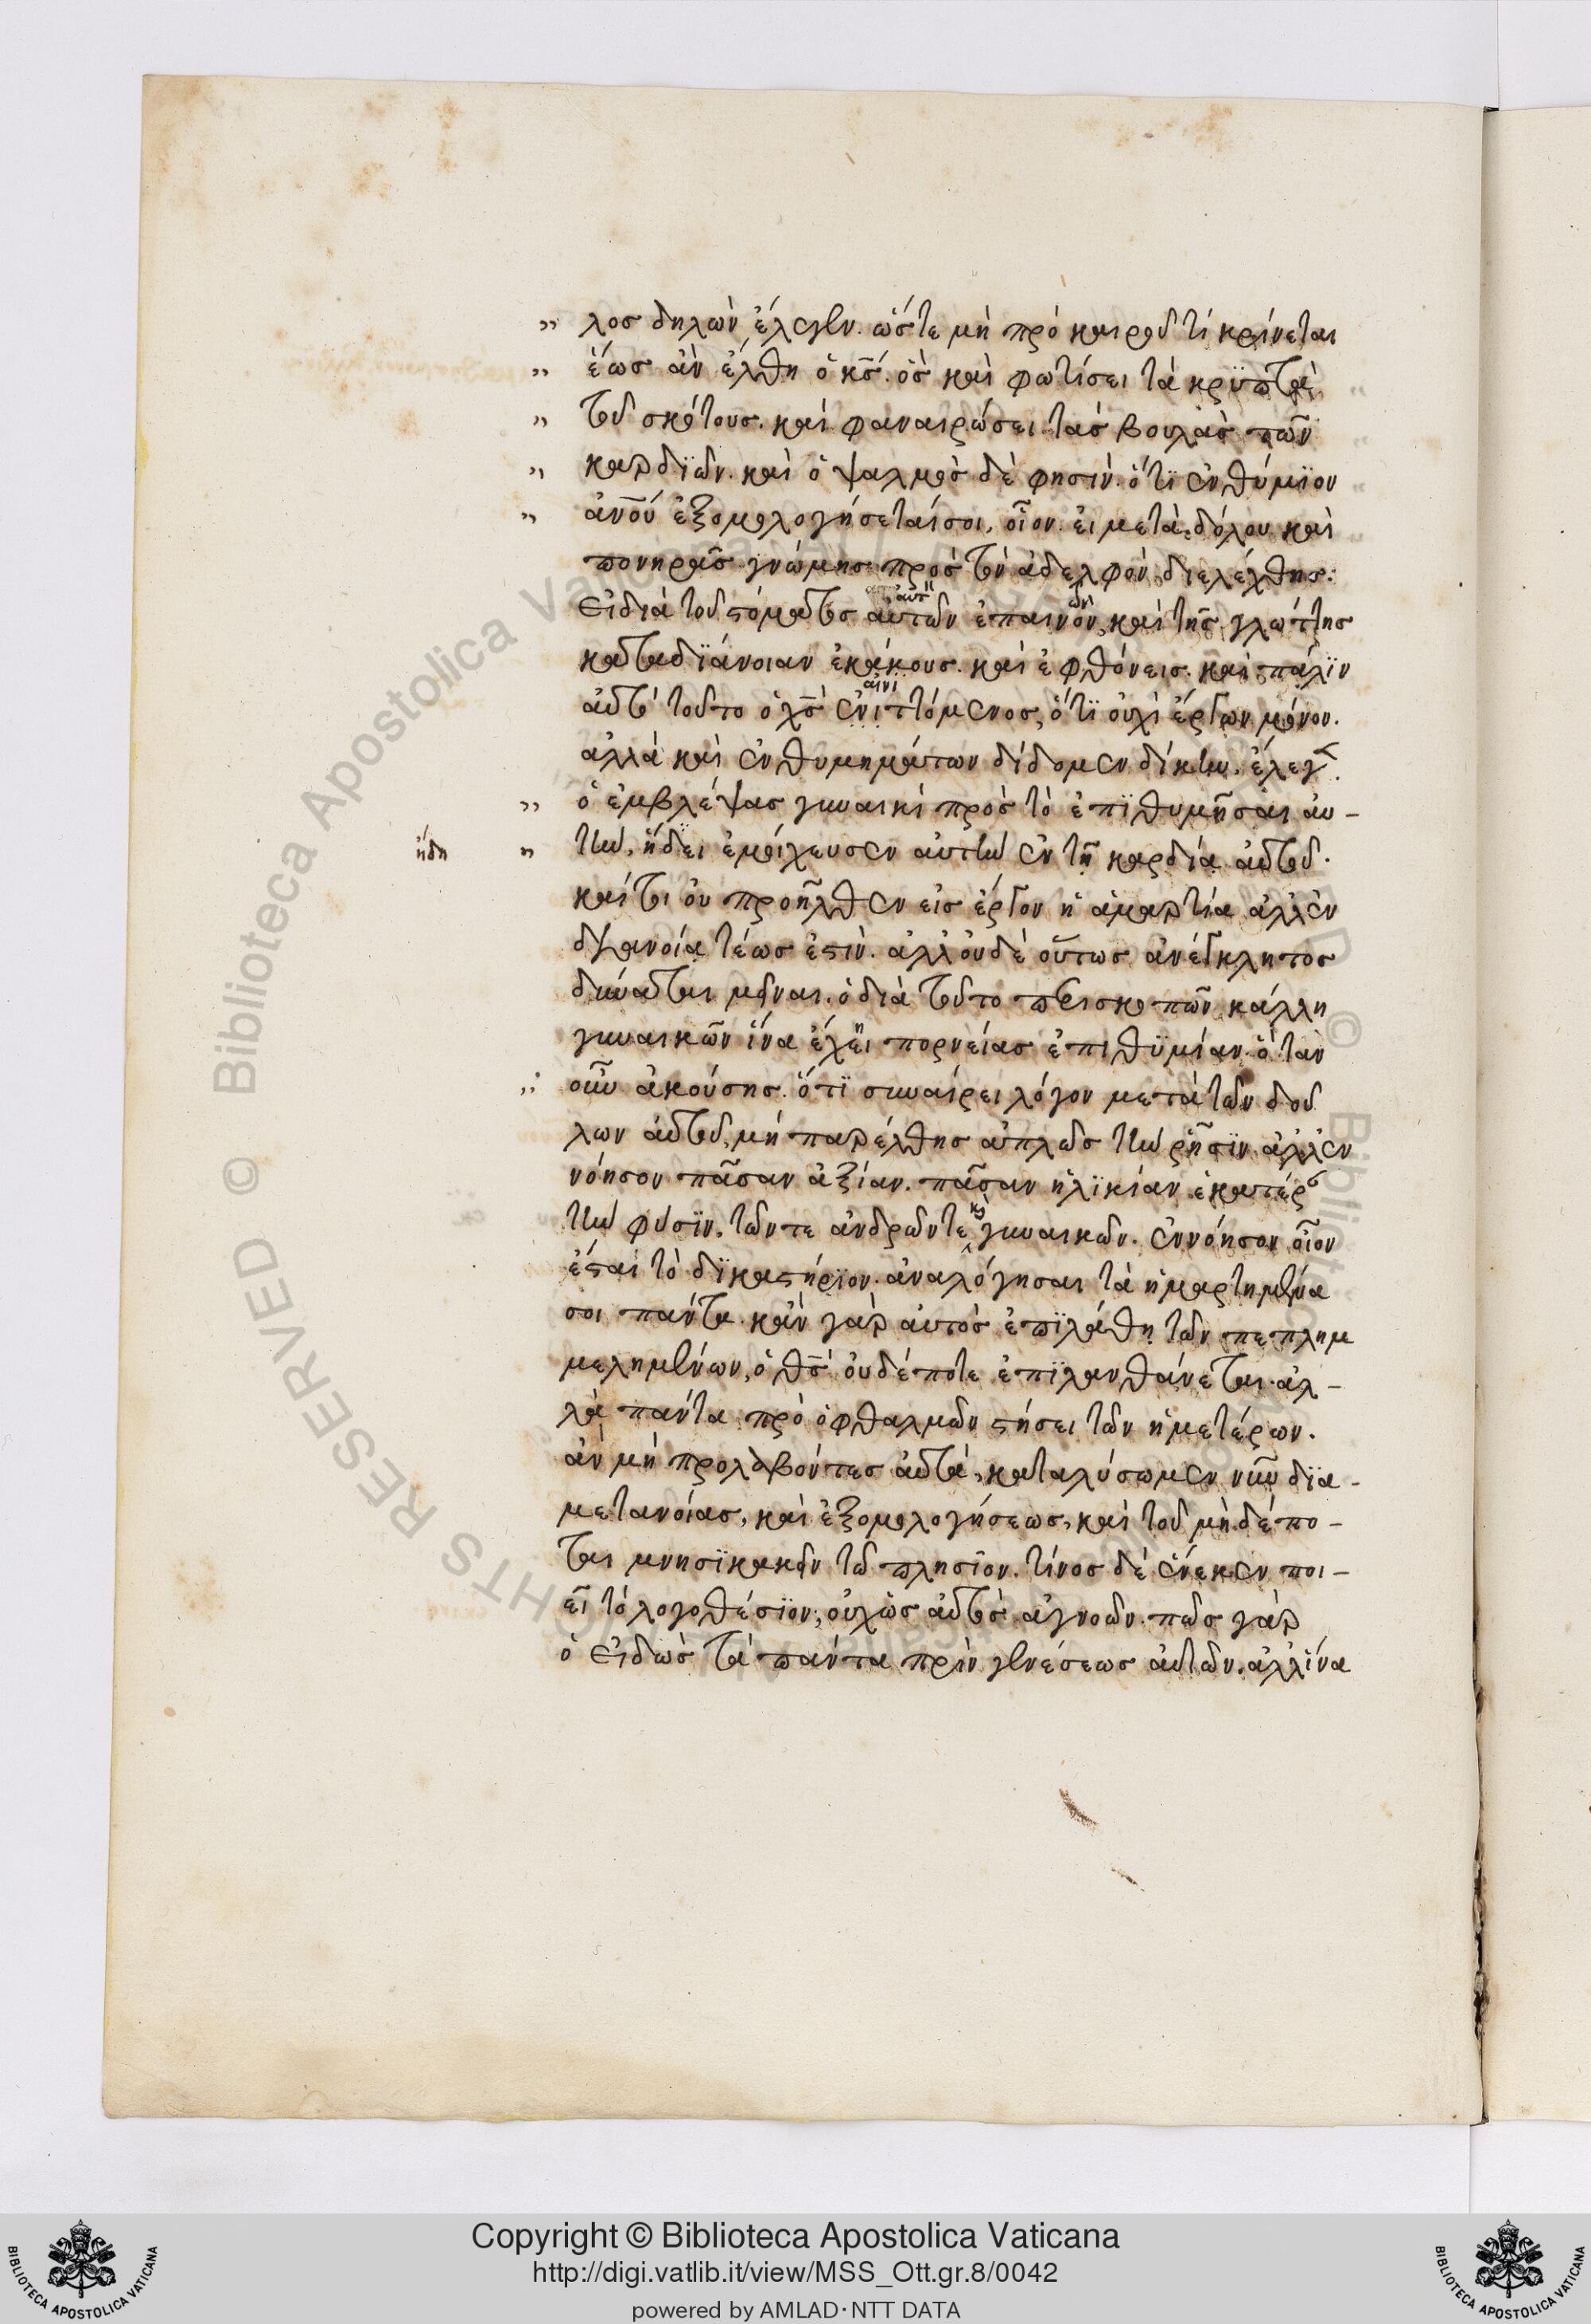 λοσ δηλῶν ἔλεγεν. ὥστε μὴ πρὸ καιροῦ τί κρίνεται
ἕωσ ἂν ἔλθη ὁ κσ̅. ὃσ καὶ φωτίσει τὰ κρϋπτὰ
τοῦ σκότουσ. καὶ φαναιρώσει τὰσ βουλὰσ τῶν
καρδϊῶν. καὶ ὁ ψαλμὸσ δὲ φησὶν. ὅτϊ ἐνθύμϊον
ἀνο̅υ ἐξομολογήσεταίσοι. οἷον. εἰ μετὰ δόλου καὶ
πονηρᾶσ γνώμησ πρὸσ τὸν ἀδελφὸν διελέχθησ:
εἰ διὰ τοῦ στόματοσ αὐτῶν ἐπαινὸν, καὶ τῆσ γλώττησ
κατα δϊάνοιαν ἐκάκουσ. καὶ ἐφθόνεισ. καὶ πάλϊν
αὐτὸ τοῦτο ὁ χσ̅ ἐνιττόμενοσ, ὅτϊ οὐχὶ ἔργων μόνον.
αἰνι
ἀλλὰ καὶ ἐνθυμημάτων δίδομεν δίκην. ἔλεγ
ὁ ἐμβλέψασ γυναικὶ πρὸσ τὸ ἐπϊθυμῆσαι αυ-
ἤδη
τὴν, ἤδει ἐμοίχευσεν αὐτὴν ἐν τῆ καρδία αὐτοῦ.
καίτοι οὐ προῆλθεν εἰσ ἔργον ἡ ἁμαρτία ἀλλ' ἐν
διανοία τέωσ ἐστὶν. ἀλλ' οὐδὲ οὕτωσ ἀνέγκλητοσ
δύναται μεῖναι. ὁ διὰ τοῦτο περισκοπῶν κάλλη
γυναικῶν ἵνα ἔχηι πορνείασ ἐπιθϋμίαν. ὅταν
οὖν ἀκούσησ. ὅτϊ συναίρει λόγον μετὰ τῶν δού
λων αὐτοῦ, μὴ παρέλθησ ἁπλῶσ τὴν ρῆσϊν. ἀλλ' ἐν
νόησον πᾶσαν ἀξίαν. πᾶσαν ἡλϊκίαν. ἑκατέρ
τὴν φύσϊν. τῶν τε ἀνδρῶν τε καὶ γυναικῶν. ἐννόησον οἷον
ἔσται τὸ δϊκαστήρϊον. ἀναλόγησαι τὰ ἡμαρτημένα
σοι πάντα. κἂν γὰρ αὐτὸσ ἐπϊλάθη τῶν πεπλημ
μελημένων, ὁ θσ̅ οὐδέποτε ἐπϊλανθάνεται. ἀλ-
λὰ πάντα πρὸ ὀφθαλμῶν στήσει τῶν ἡμετέρων.
ἂν μὴ προλαβόντεσ αὐτὰ, καταλύσωμεν νῦν δϊα-
μετανοίασ, καὶ ἐξομολογήσεωσ, καὶ τοῦ μὴ δέπο-
ται μνησϊκακεῖν τῶ πλησίον. τίνοσ δὲ ἕνεκεν ποι-
εῖ τὸ λογοθέσϊον; οὐχ ὡσ αὐτὸσ ἀγνοῶν. πῶσ γὰρ
ὁ εἰδὼσ τὰ πάντα πρὶν γενέσεωσ αὐτῶν. ἀλλ' ἵνα
Copyright © Biblioteca Apostolica Vaticana
http://digi.vatlib.it/view/MSS_Ott.gr.8/0042
powered by AMLAD·NTT DATA